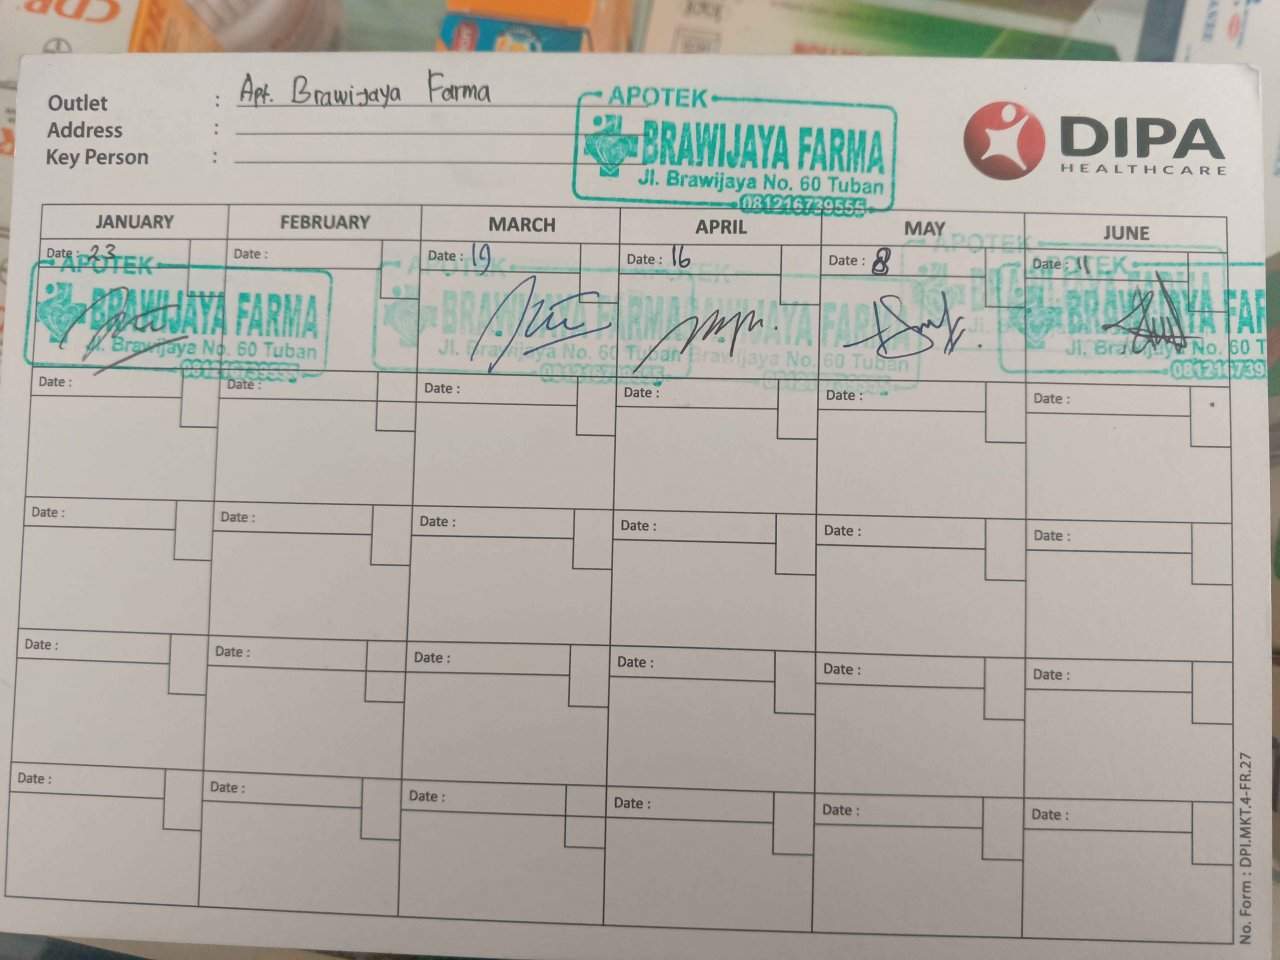 Outlet : Apt. Brawijaya Farma
Address :
Key Person :
APOTEK
BRAWIJAYA FARMA
Jl. Brawijaya No. 60 Tuban
081216739555
DIPA
HEALTHCARE
JANUARY FEBRUARY MARCH APRIL MAY JUNE
Date : 23 Date : Date : 19 Date : 16 Date : 8 Date : 11
APOTEK APOTEK APOTEK APOTEK
BRAWIJAYA FARMA BRAWIJAYA FARMA
Jl. Brawijaya No. 60 Tuban Jl. Brawijaya No. 60 Tuban Brawijaya No. 60 Tuban Jl. Brawijaya No. 60 T
Date : Date : Date : Date : Date : Date :
Date : Date : Date : Date : Date : Date :
Date : Date : Date : Date : Date : Date :
Date : Date : Date : Date : Date : Date :
No. Form : DPI.MKT.4-FR.27